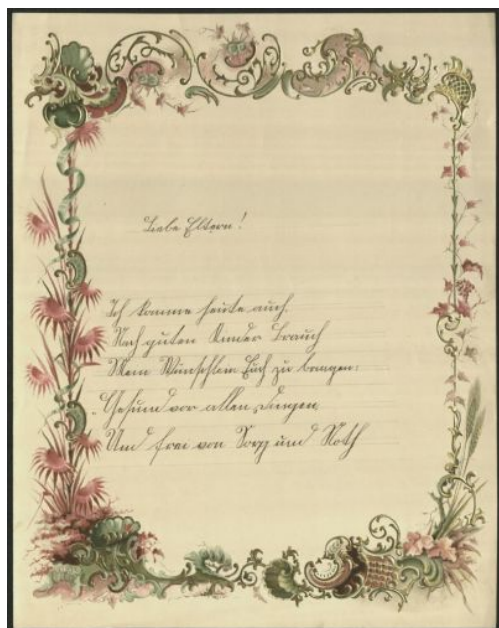 Liebe Eltern!
Ich komme heute auch
Nach guten Kinder Brauch
Mein Wünschlein Euch zu bringen:
Gesund vor allen Dingen
Und frei von Sorg und Noth